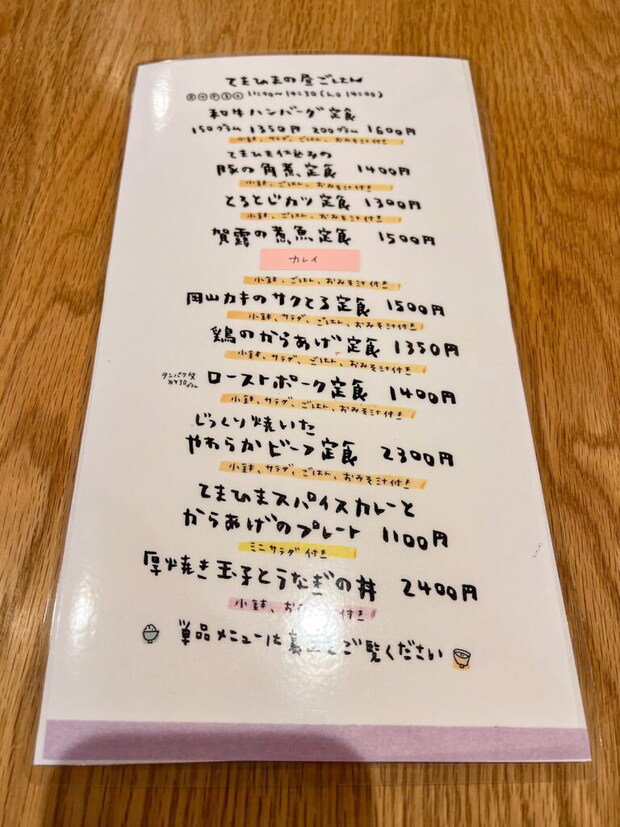 てまひまの昼ごはん
11:00~14:30(L.O 14:00)
和牛ハンバーグ定食
150グラム 1350円 200グラム 1600円
小鉢、サラダ、ごはん、おみそ汁付き
てまひま仕込みの
豚の角煮定食 1400円
小鉢、ごはん、おみそ汁付き
とろとじカツ定食 1300円
小鉢、ごはん、おみそ汁付き
賀露の煮魚定食 1500円
カレイ
小鉢、ごはん、おみそ汁付き
岡山カキのサクとろ定食 1500円
小鉢、サラダ、ごはん、おみそ汁付き
鶏のからあげ定食 1350円
小鉢、サラダ、ごはん、おみそ汁付き
タンパク質
約30グラム
ローストポーク定食 1400円
小鉢、サラダ、ごはん、おみそ汁付き
じっくり焼いた
やわらかビーフ定食 2300円
小鉢、サラダ、ごはん、おみそ汁付き
てまひまスパイスカレーと
からあげのプレート 1100円
ミニサラダ付き
厚焼き玉子とうなぎの丼 2400円
小鉢、お 付き
単品メニューは裏 ご覧ください